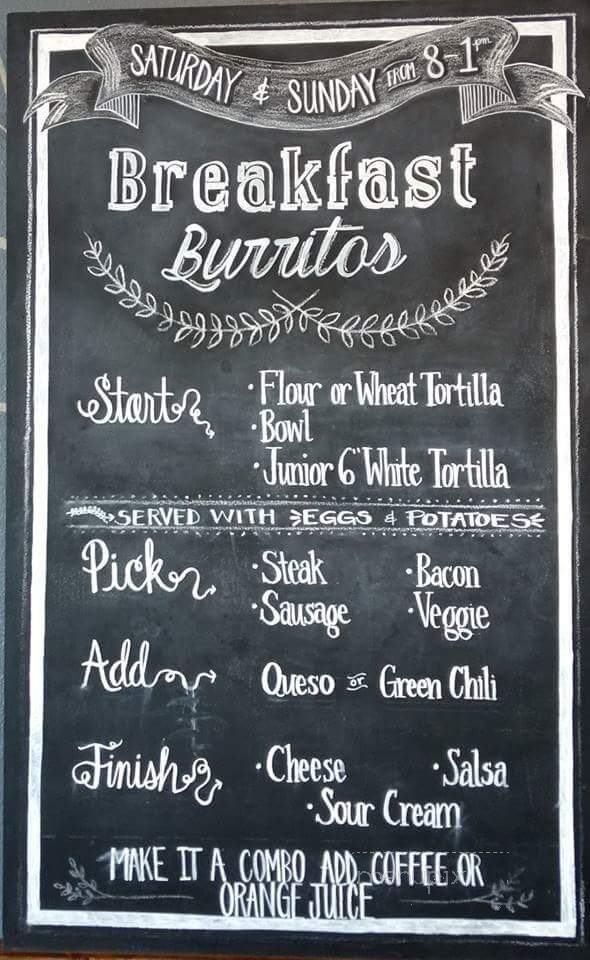 SATURDAY & SUNDAY FROM 8-1pm
Breakfast
Burritos
Start
• Flour or Wheat Tortilla
• Bowl
• Junior 6" White Tortilla
SERVED WITH EGGS & POTATOES
Pick
• Steak • Bacon
• Sausage • Veggie
Add
Queso or Green Chili
Finish
• Cheese • Salsa
• Sour Cream
MAKE IT A COMBO ADD COFFEE OR
ORANGE JUICE